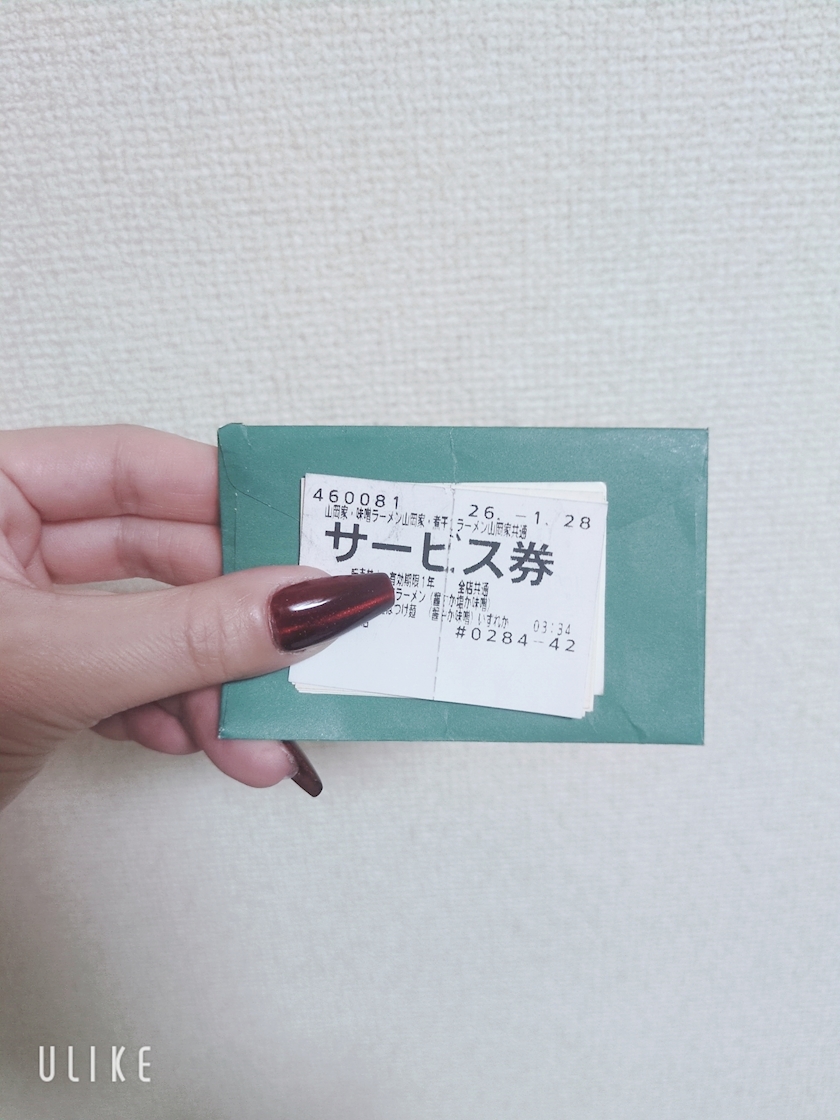 460081 26.-1.28
山岡家・味噌ラーメン山岡家・煮干しラーメン山岡家共通
サービス券
有効期限1年 全店共通
ラーメン
つけ麺 いずれか 03:34
#0284-42
ULIKE